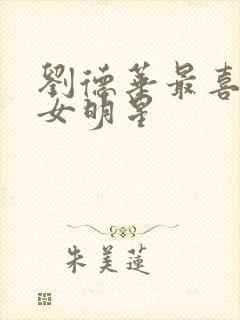 劉德華最喜
女明星
朱美蓮